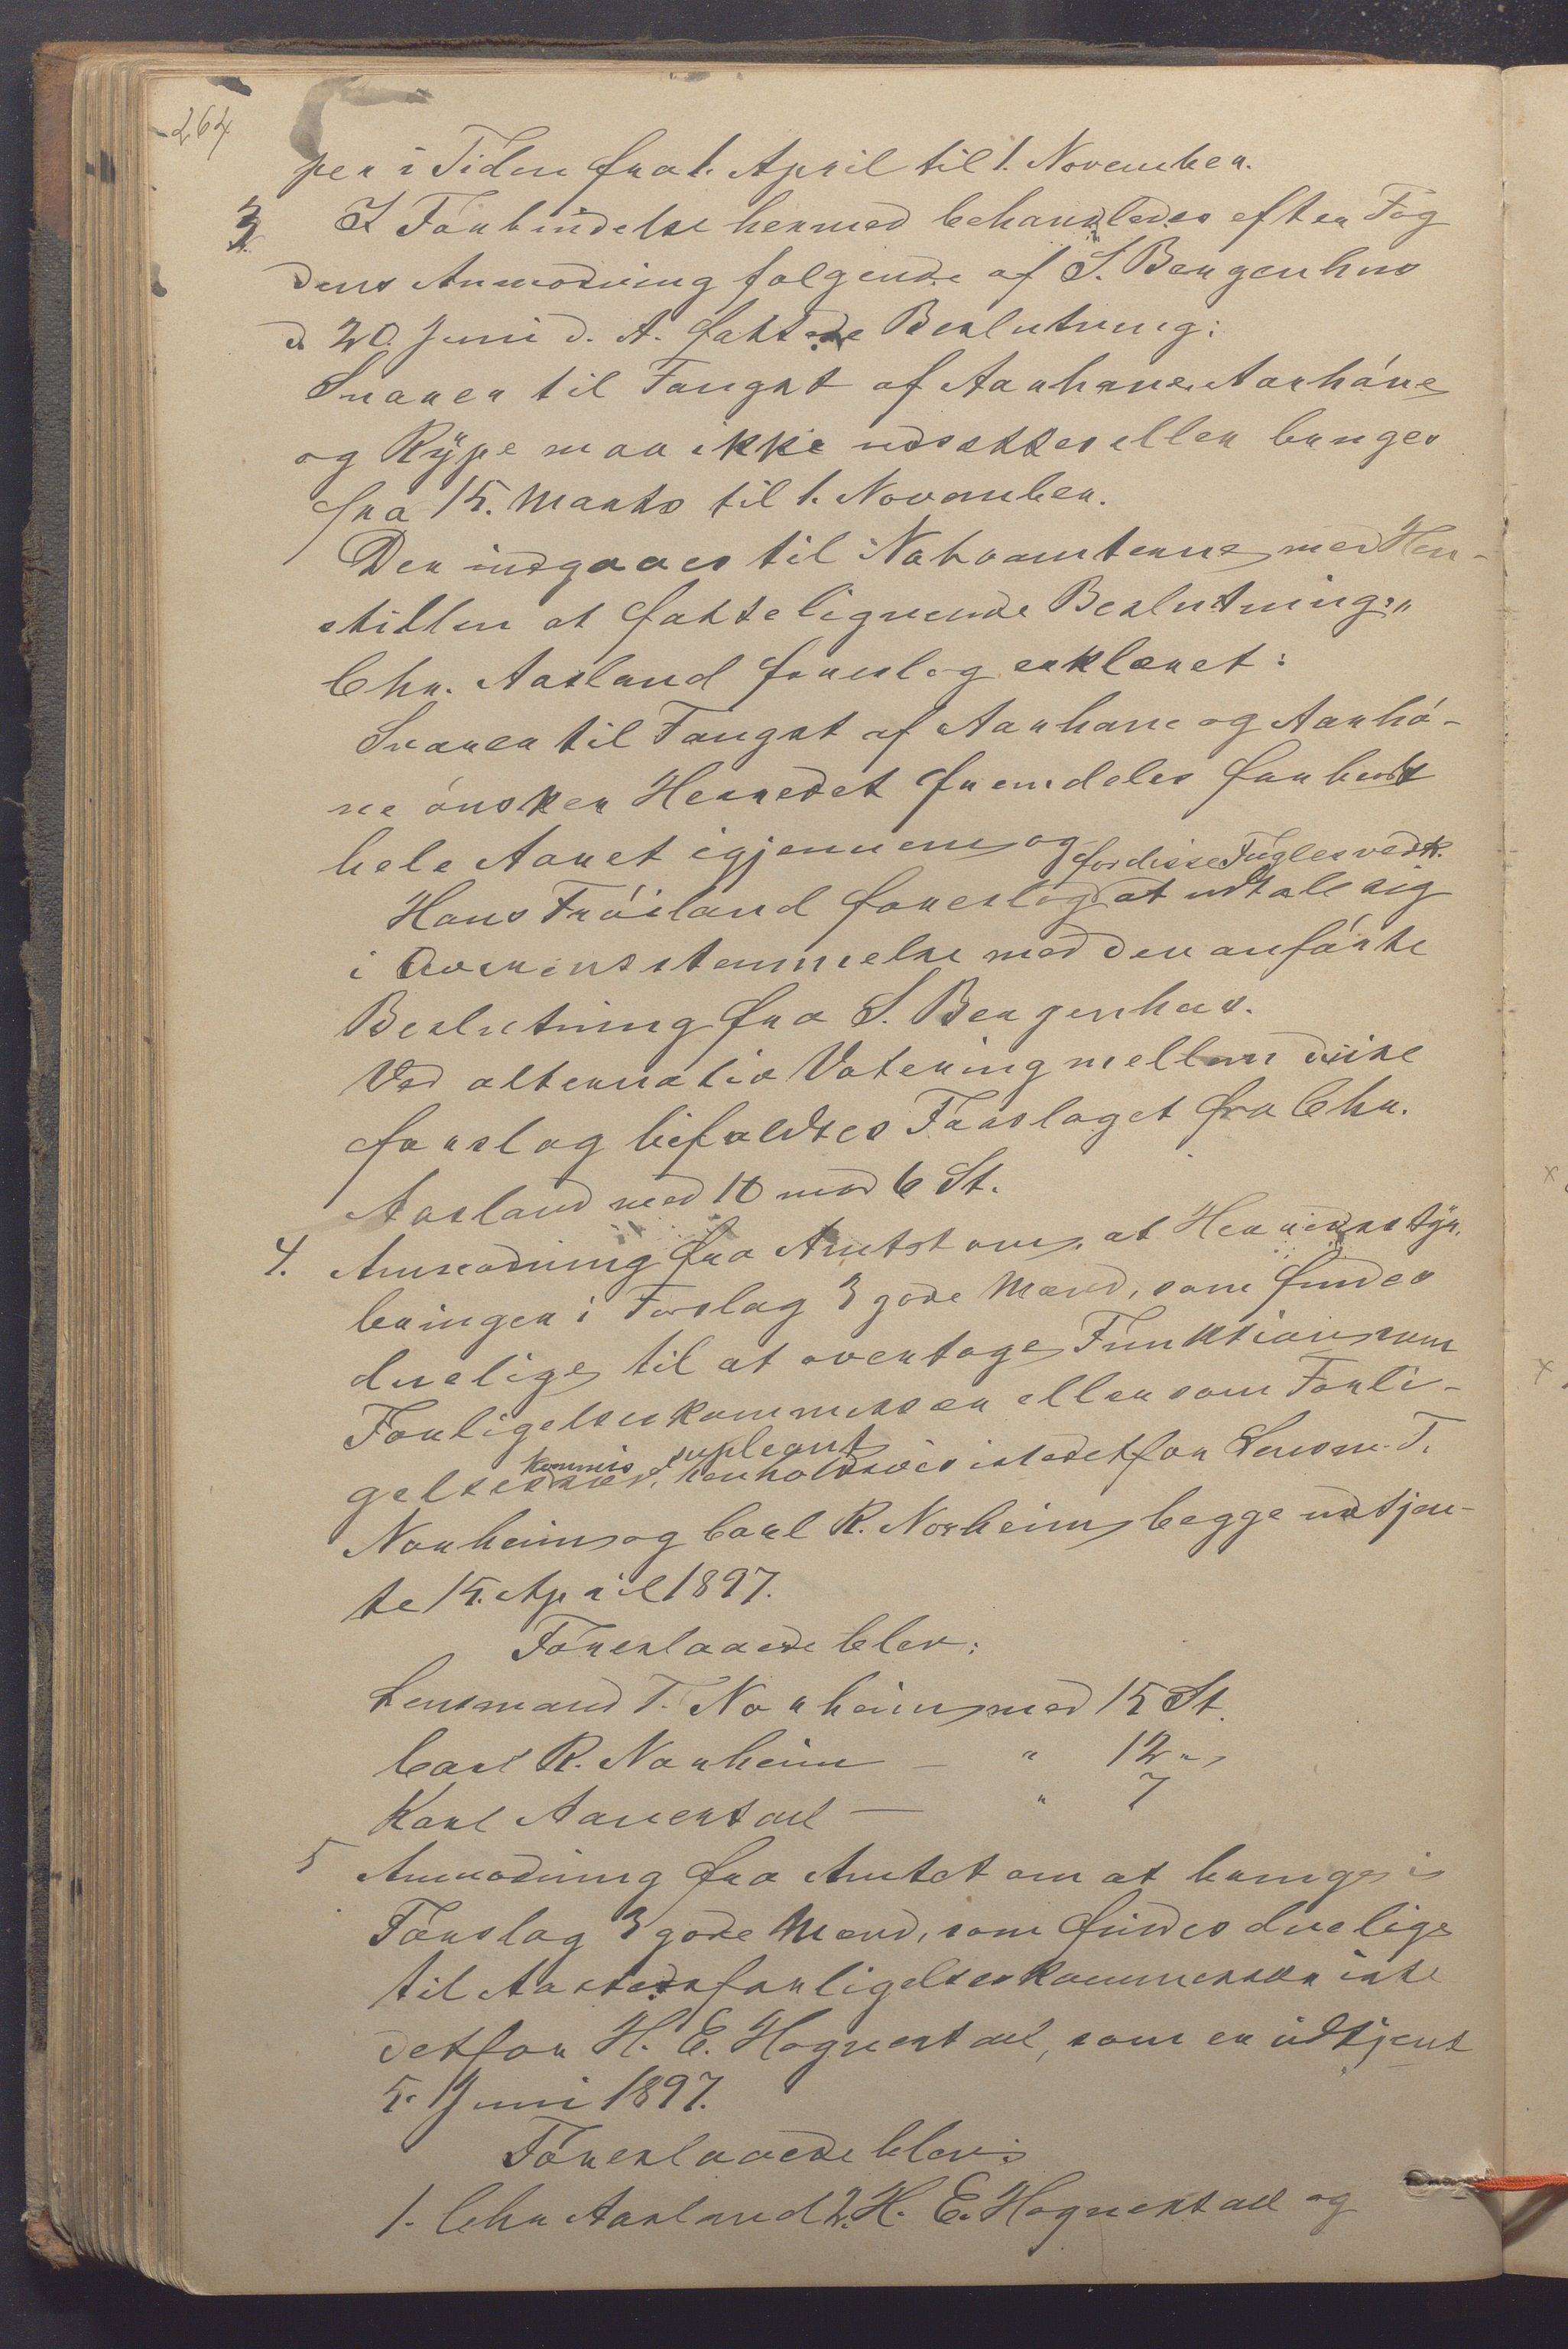 264
per i Tiden fra 1. April til 1. November.
3. I Forbindelse hermed behandledes efter Fog
dens Anmodning følgende af S. Bergenhus
d. 20. Juni d. A. fattede Beslutning:
Snarer til Fangst af Aarhane, Aarhóne
og Rÿpe maa ikke udsættes eller bruges
fra 15. Marts til 1. November.
Der indgaaes til Naboamterne med Hen-
stillen at fatte lignende Beslutning."
Chr. Aasland foreslog erklæret:
Snarer til Fangst af Aarhane og Aarhó-
ne ónsker Herredet fremdeles forbudt
hele Aaret igjennem og
for disse Fugles vedk.
Hans Fróiland foreslog at udtale sig
i Overensstemmelse med den anfórte
Beslutning fra S. Bergenhus.
Ved alternativ Votering mellem disse
forslag bifaldtes Forslaget fra Chr.
Aasland med 10 mod 6 St.
4. Anmodning fra Amtet om, at Herredsstÿr.
bringer i Forslag 3 gode Mænd, som findes
duelige til at overtage Funktion som
Forligelseskommissær eller som Forli-
kommis suppleant
gelses henholdsvis istedetfor Lensm. T.
Norheim og Carl R. Norheim, begge udtjen-
te 15. April 1897.
Foreslaaede blev:
Lensmand T. Norheim med 15 St.
Carl R. Norheim — " 12 "
Karl Aarrestad — " 7
5 Anmodning fra Amtet om at bringe i
Forslag 3 gode Mænd, som findes duelige
til Aastedsforligelseskommissær iste
detfor H. E. Hognestad, som er udtjent
5. Juni 1897.
Foreslaaede blev:
1. Chr Aasland 2. H. E. Hognestad og